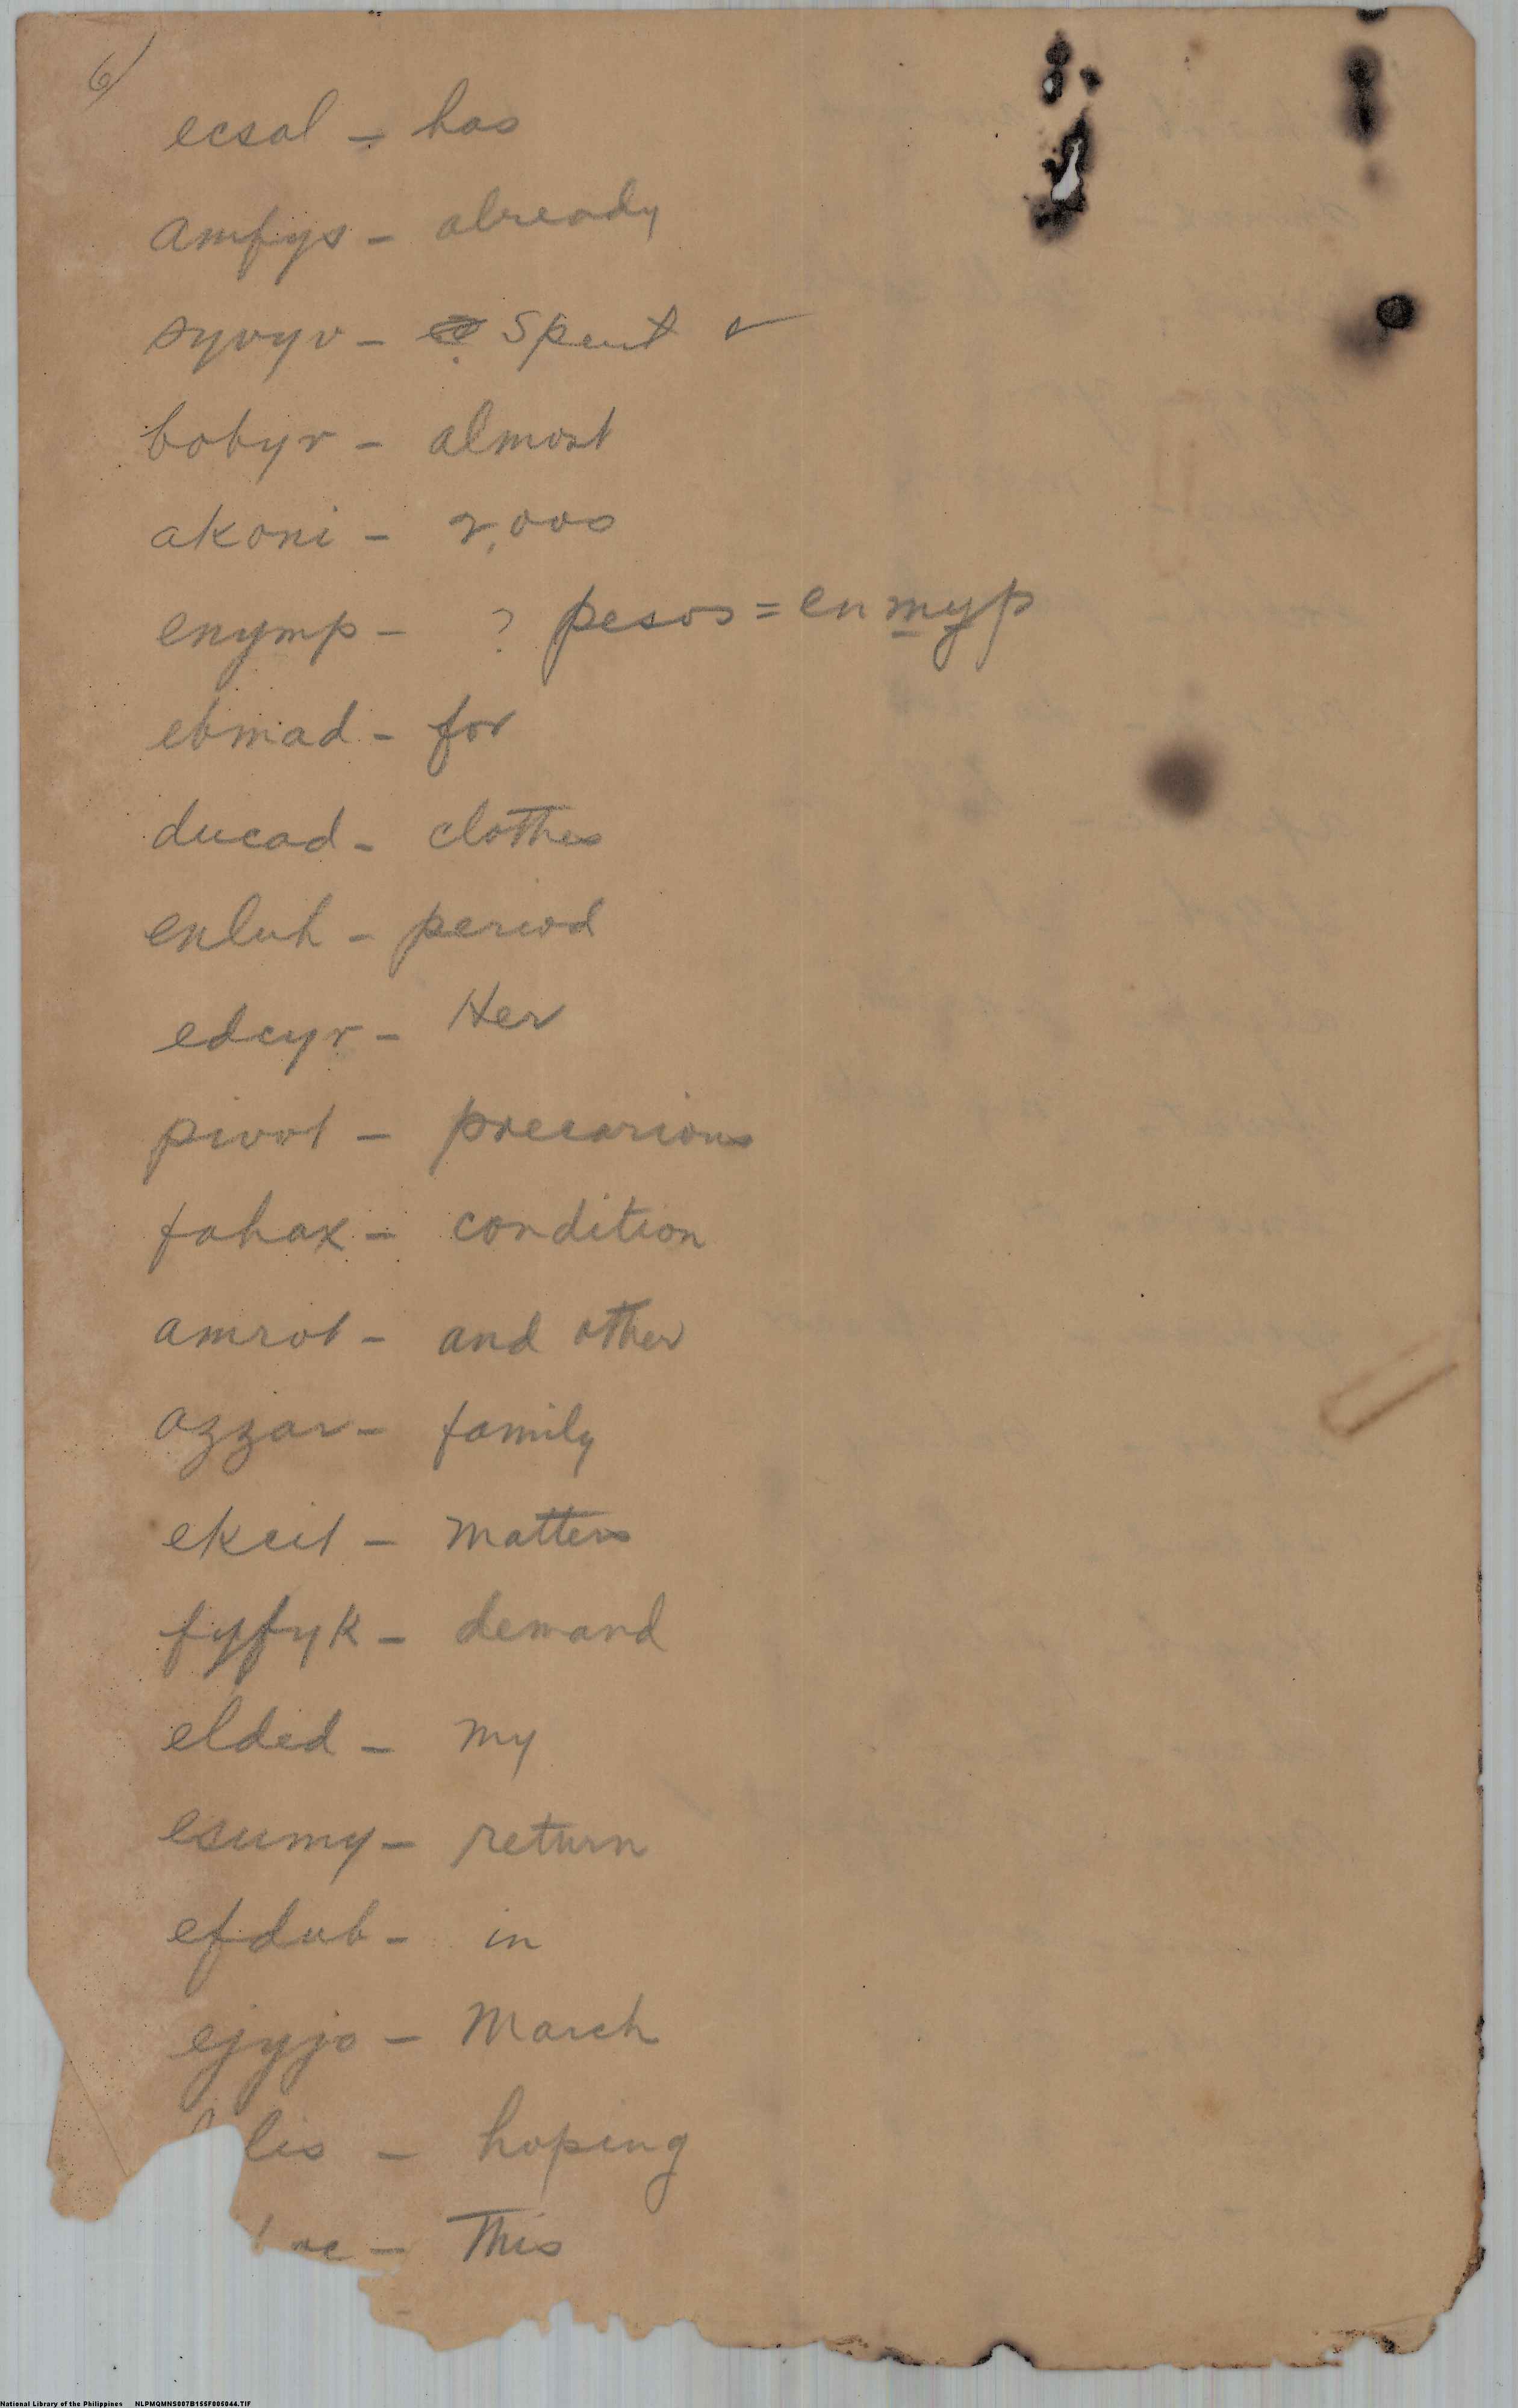 6)
ecsal - has
amfys - already
syvyv - Spent ✓
bobyr - almost
akoni - 2,000
enymp - ? pesos = enmyp
ebmad - for
ducad - clothes
enluh - period
edcyr - Her
pivot - precarious
fahax - condition
amrot - and other
azzar - family
ekcit - matters
fyfyk - demand
elded - my
esumy - return
efdub - in
ejyjo - March
lis - hoping
- This
National Library of the Philippines NLPMQMNS007B155F005044.TIF